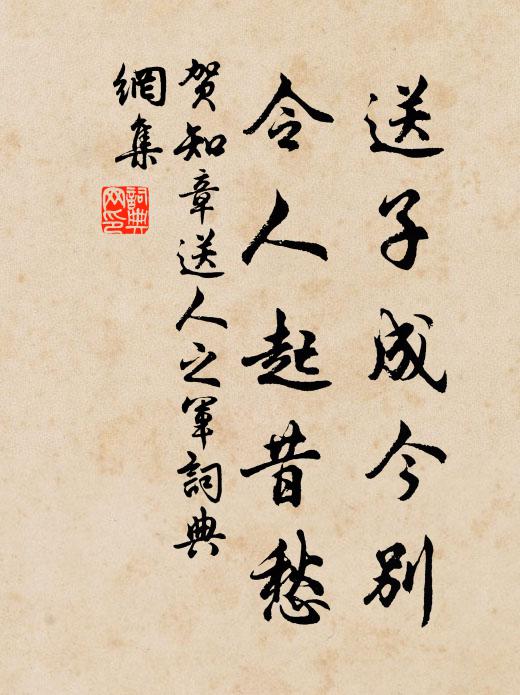 送子成今别
令人起昔愁
贺知章送人之军詞典
網集
詞典網印